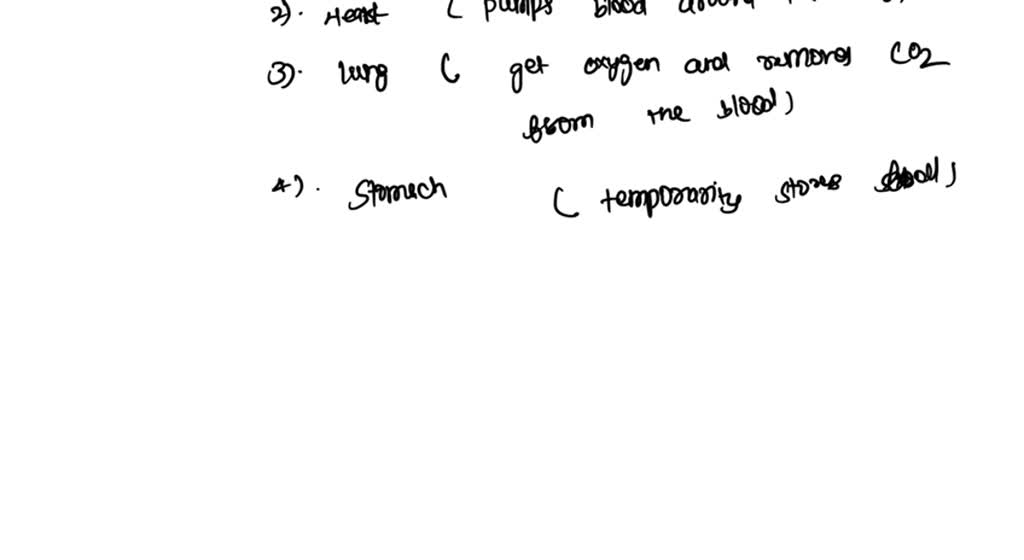 2). Heart ( pumps blood around
3). lung ( get oxygen and removes CO2
from the blood)
4). Stomach ( temporarity stores food)